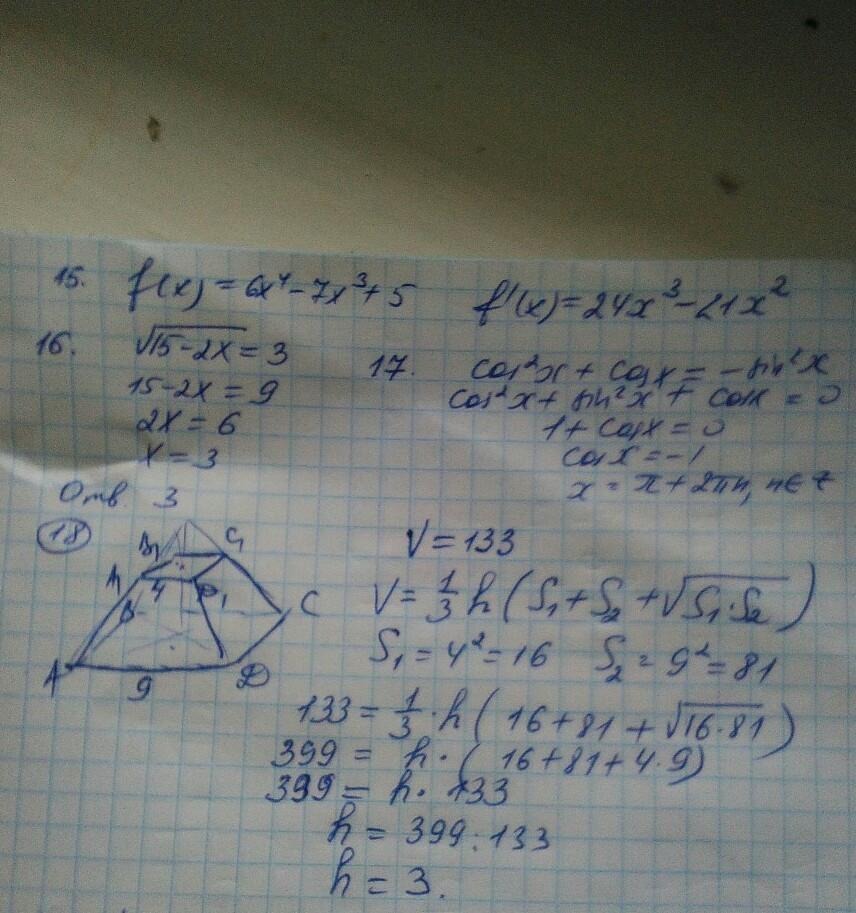 15. f(x) = 6x⁴ - 7x³ + 5 f'(x) = 24x³ - 21x²
16. √15-2x = 3
15-2x = 9
2x = 6
x = 3
Отв. 3
17. cos²x + cosx = -sin²x
cos²x + sin²x + cosx = 0
1 + cosx = 0
cosx = -1
x = π + 2πn, n∈Z
18
B₁ C₁
A₁ 4 D₁
B C
A 9 D
V = 133
V = 1/3 h (S₁ + S₂ + √S₁·S₂)
S₁ = 4² = 16 S₂ = 9² = 81
133 = 1/3 · h (16 + 81 + √16·81)
399 = h · (16 + 81 + 4·9)
399 = h · 133
h = 399 : 133
h = 3.